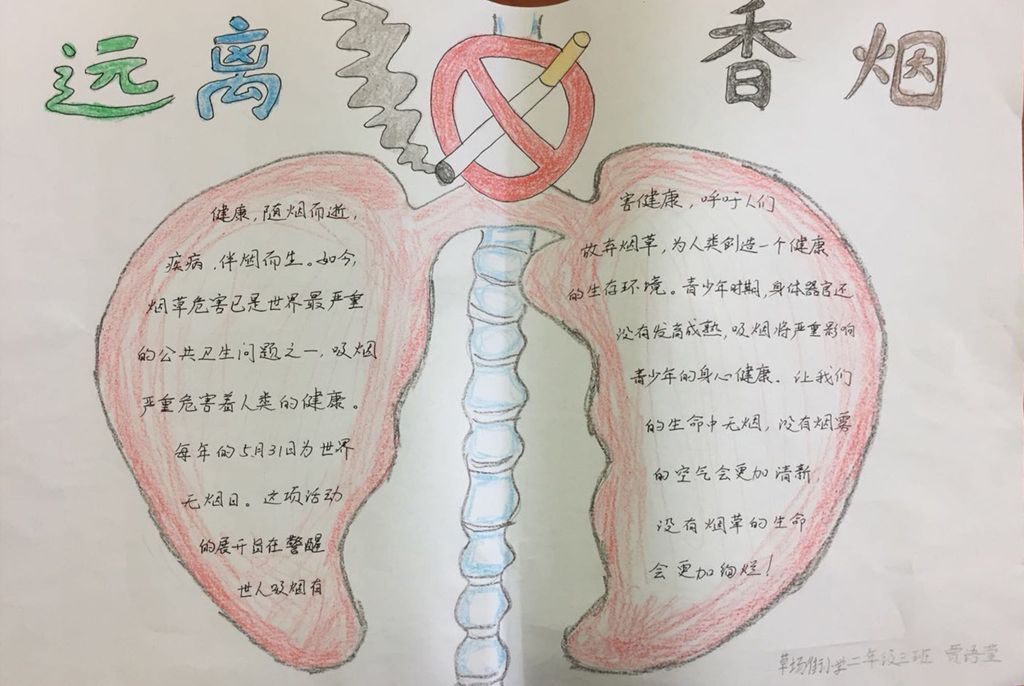 远离
香烟
健康，随烟而逝，
疾病，伴烟而生。如今，
烟草危害已是世界最严重
的公共卫生问题之一，吸烟
严重危害着人类的健康。
每年的5月31日为世界
无烟日。这项活动
的展开旨在警醒
世人吸烟有
害健康，呼吁人们
放弃烟草，为人类创造一个健康
的生存环境。青少年时期，身体器官还
没有发育成熟，吸烟将严重影响
青少年的身心健康。让我们
的生命中无烟，没有烟雾
的空气会更加清新，
没有烟草的生命
会更加绚烂！
草场街小学二年级三班 贾语萱